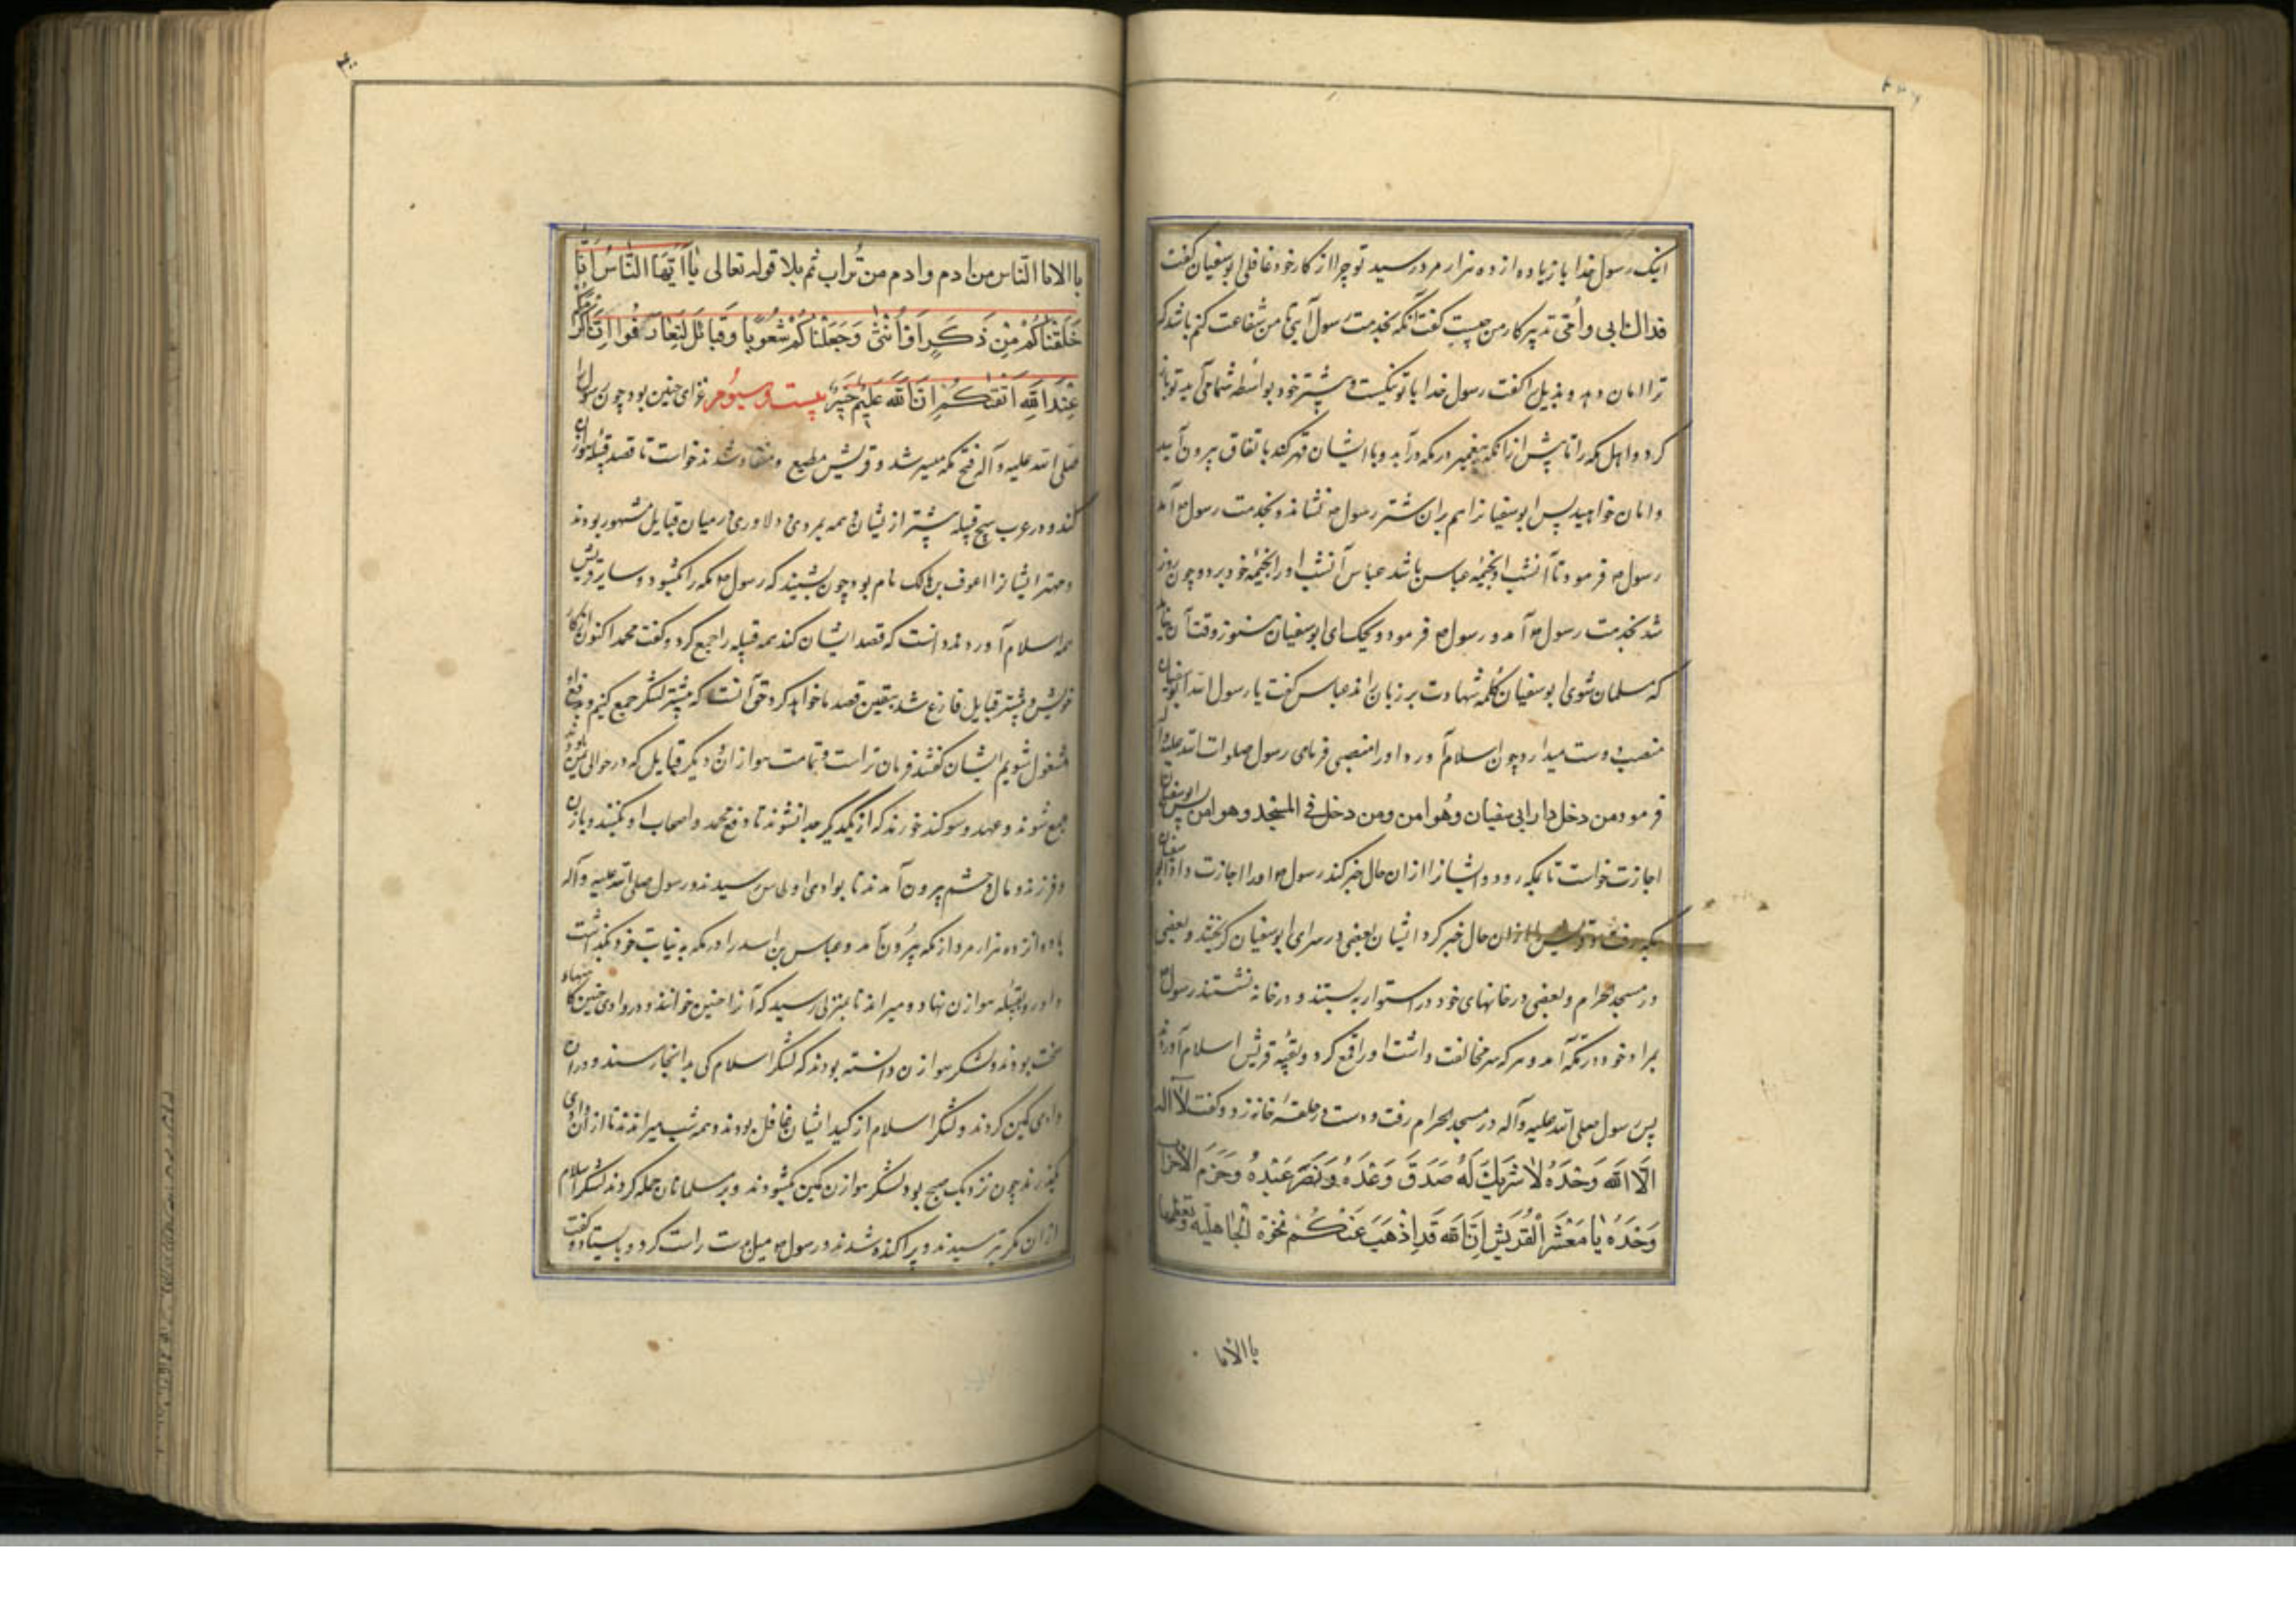 اینک رسول خدا با زیاده از ده هزار مرد رسید تو چرا از کار خود غافلی ابوسفیان گفت
فداک ابی وأمّی تدبیر کار من چیست گفت آنکه بخدمت رسول آیی تا من شفاعت کنم باشد که
ترا امان دهد و بدیل را گفت رسول خدا با تو نیکست و پیشتر خود بواسطه شما می آید تو باز
کرد و اهل مکه را تا پیش از انکه پیغمبر در مکه در آید و با ایشان قهر کند باتفاق بیرون آیید
و امان خواهید پس ابوسفیانرا هم بران شتر رسول نشاند و بخدمت رسول آمد
رسول فرمود تا آنشب در خیمه عباس باشد عباس آنشب او را بخیمه خود برد و چون روز
شد بخدمت رسول آمد و رسول فرمود ویحک ای ابوسفیان هنوز وقت آن نیامد
که مسلمان شوی ابوسفیان کلمه شهادت بر زبان راند عباس گفت یا رسول الله ابوسفیان
منصب دوست میدارد چون اسلام آورد او را منصبی فرمای رسول صلوات الله علیه و آله
فرمود من دخل دار ابی سفیان وهو امن ومن دخل فی المسجد وهو امن پس ابوسفیان
اجازت خواست تا بمکه رود و ایشانرا ازان حال خبر کند رسول او را اجازت داد ابوسفیان
بمکه رفت و قریش را ازان حال خبر کرد ایشان بعضی در سرای ابوسفیان گریختند و بعضی
در مسجد حرام و بعضی در خانهای خود در استوار ببستند و در خانه نشستند رسول
بمراد خود در مکه آمد و هر که سر مخالفت داشت او را قمع کرد و بقیه قریش اسلام آوردند
پس رسول صلی الله علیه وآله در مسجد الحرام رفت و دست در حلقه خانه زد و گفت لا اله
الا الله وحده لا شریك له صدق وعده ونصر عبده وحزم الاحزاب
وحده یا معشر القریش ان الله قد اذهب عنکم نخرة الجاهلیه وتعظمها
باالابا
باالابا الناس من ادم وادم من تراب ثم بلا قوله تعالی یا ایها الناس انا
خلقناکم من ذکر او انثی وجعلناکم شعوبا وقبائل لتعارفوا ان اکرمکم
عند الله اتقیکم ان الله علیم خبیر بیست و سیوم غزای حنین بود چون رسول را
صلی الله علیه وآله فتح مکه میسر شد و قریش مطیع و منقاد شدند خواست تا قصد قبیله هوازن
کند و در عرب هیچ قبیله بیشتر از ایشان و همه بمردی و دلاوری در میان قبایل مشهور بودند
و مهتر ایشانرا عوف بن مالک نام بود چون بشنیدند که رسول مکه را بگشود و سایر قریش
همه اسلام آوردند دانست که قصد ایشان کند همه قبیله را جمع کرد و گفت محمد اکنون از کار
خویش و بیشتر قبایل فارغ شد بیقین قصد ما خواهد کرد حق آنست که پیشتر لشکر جمع کنیم و بدفع او
مشغول شویم ایشان گفتند فرمان تراست و تمامت هوازن و دیگر قبایل که در حوالی ایشان بودند
جمع شوند و عهد و سوکند خورند که از یکدیگر جدا نشوند تا دفع محمد و اصحاب او بکنند و با زن
و فرزند و مال و حشم بیرون آمدند تا بوادی اوطاس رسیدند و رسول صلی الله علیه وآله
با دوازده هزار مرد از مکه بیرون آمد و عباس بن اسد را در مکه به نیابت خود بگذاشت
و او رو بقبیله هوازن نهاد و میراند تا بمنزلی رسید که آنرا حنین خوانند و در وادی حنین کمینهاء
سخت بودند و لشکر هوازن دانسته بودند که لشکر اسلام کی بدانجا رسند و در ان
وادی کمین کردند و لشکر اسلام از کید ایشان غافل بودند و همه شب میراندند تا از آن وادی
بگذرند چون نزدیک صبح بود لشکر هوازن کمین بگشودند و بر مسلمانان حمله کردند لشکر اسلام
ازان مکر بترسیدند و پراکنده شدند و رسول میل دست راست کرد و بایستاد و گفت